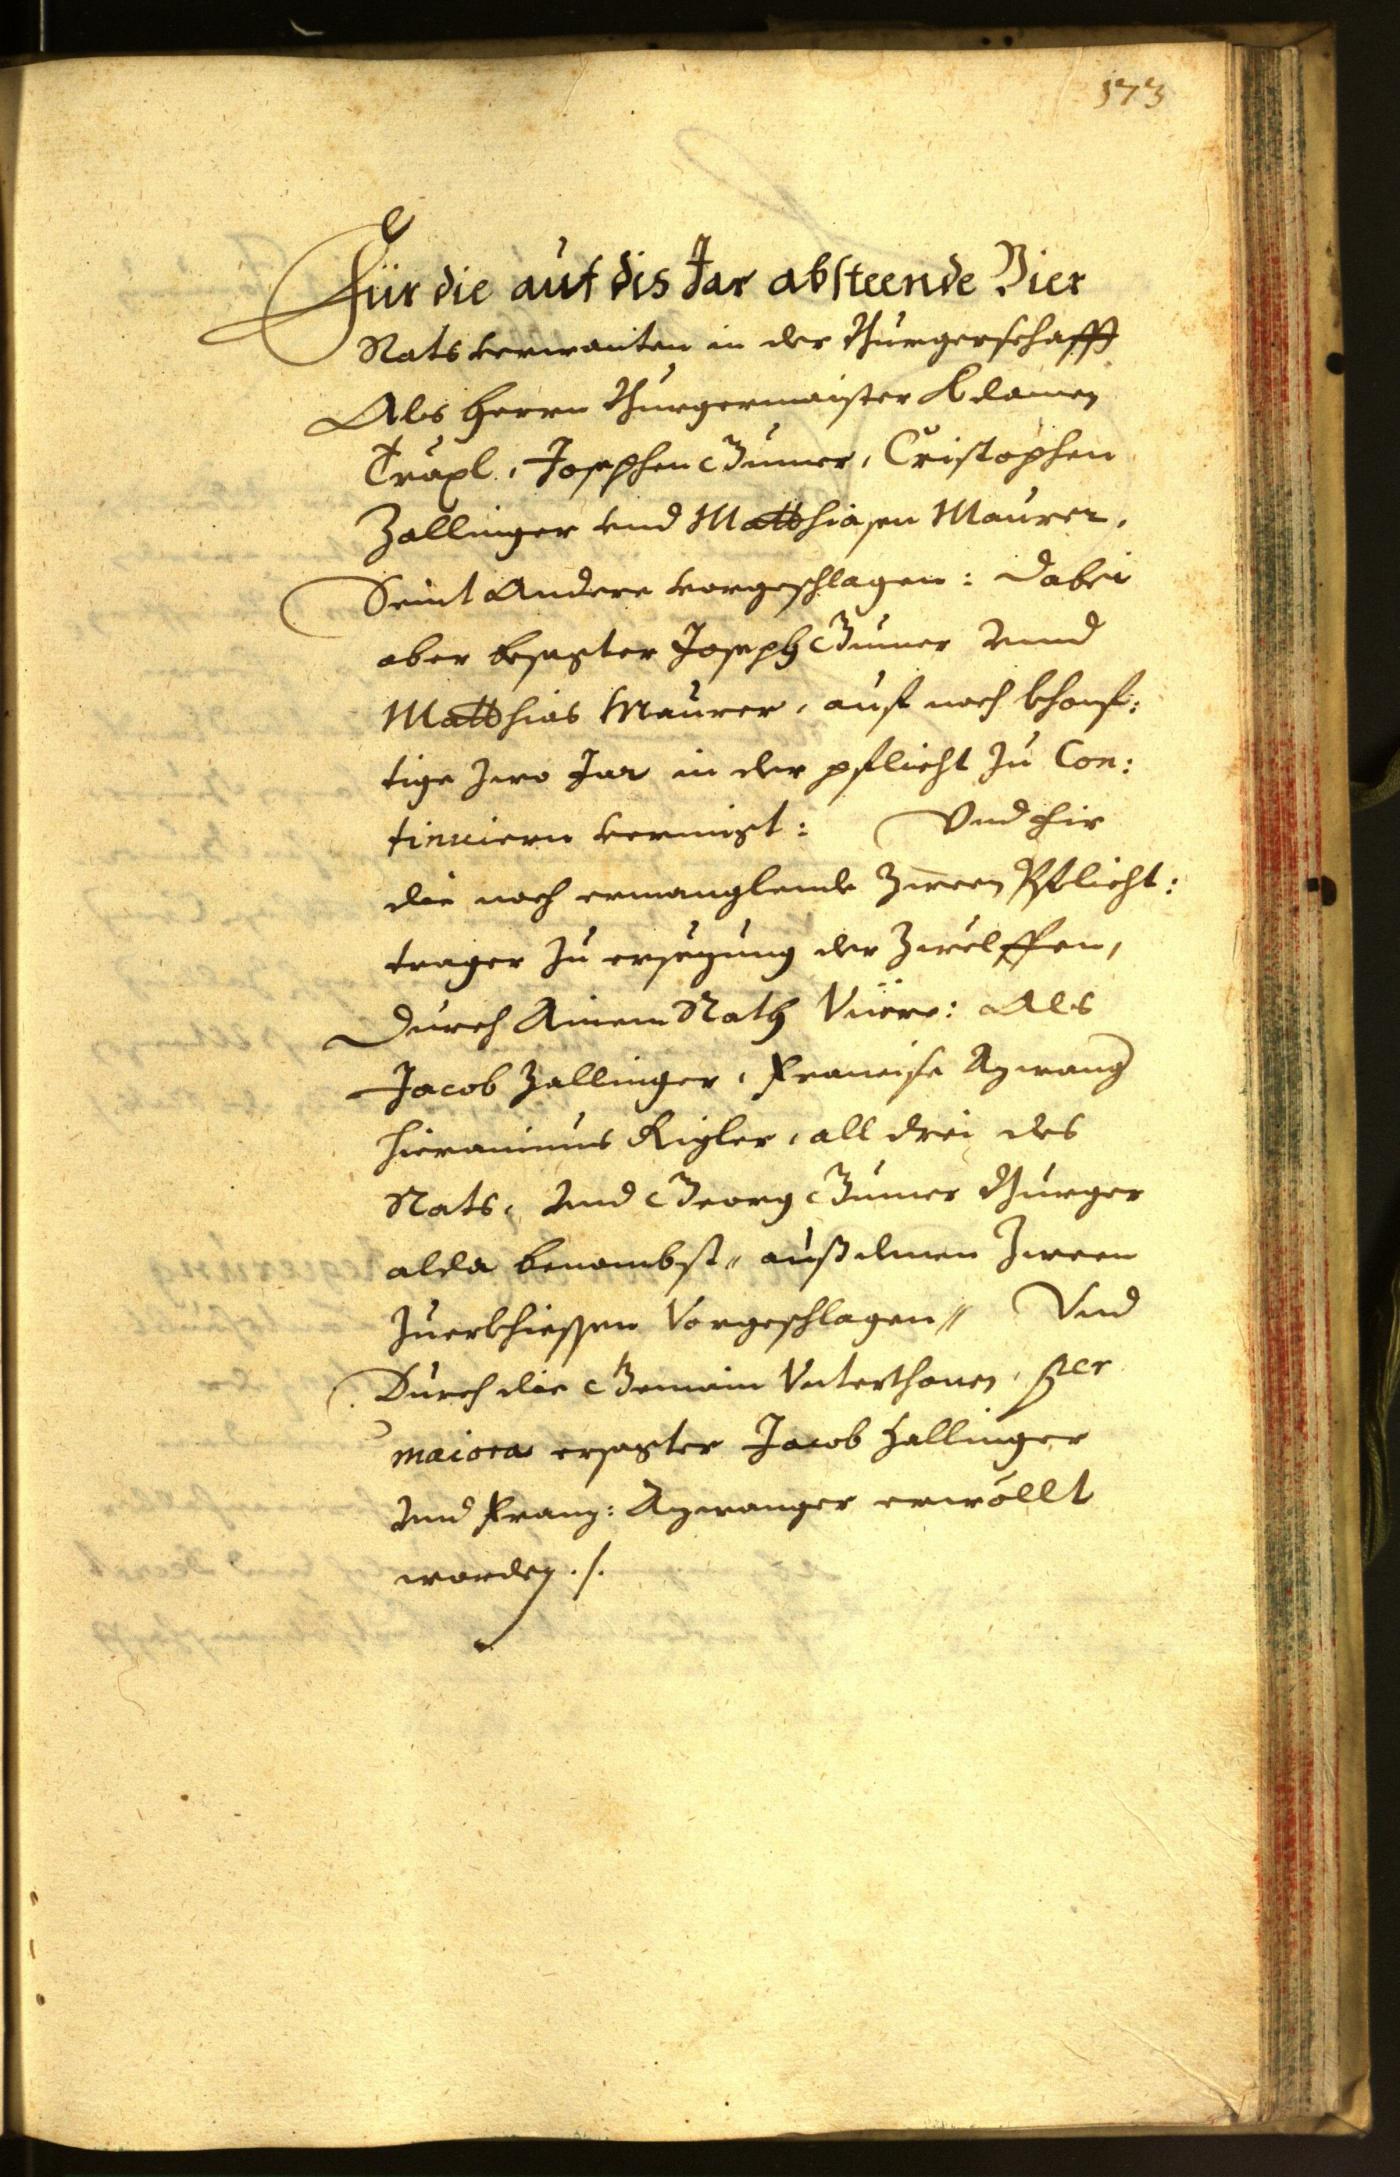 173
Für die auf dis Jar absteende Vier
Rats verwanten in der Burgerschafft
Als Herrn Burgermaister Adamen
Träxl, Josephen Gumer, Cristophen
Zallinger vnd Matthiasen Maurer,
Seint Andere vorgeschlagen: dabei
aber besagter Joseph Gumer vnnd
Matthias Maurer, auf noch khonf:
tige zwo Jar in der pflicht zu Con:
tinuiern vermigt: Vnd fir
die noch ermanglende zween Pflicht:
trager zu ersezung der Zwelffen,
Durch Ainem Rath Viere: Als
Jacob Zallinger, Francisc Azwang
Hieronimus Rigler, all drei des
Rats, Vnd Georg Gumer Burger
alda benambst, auß denen zween
zuerkhiessen Vorgeschlagen, Vnd
Durch die Gemain Vnterthonen, per
maiora ersagter Jacob Zallinger
Vnd Franz: Azwanger erwöllt
worden ./.